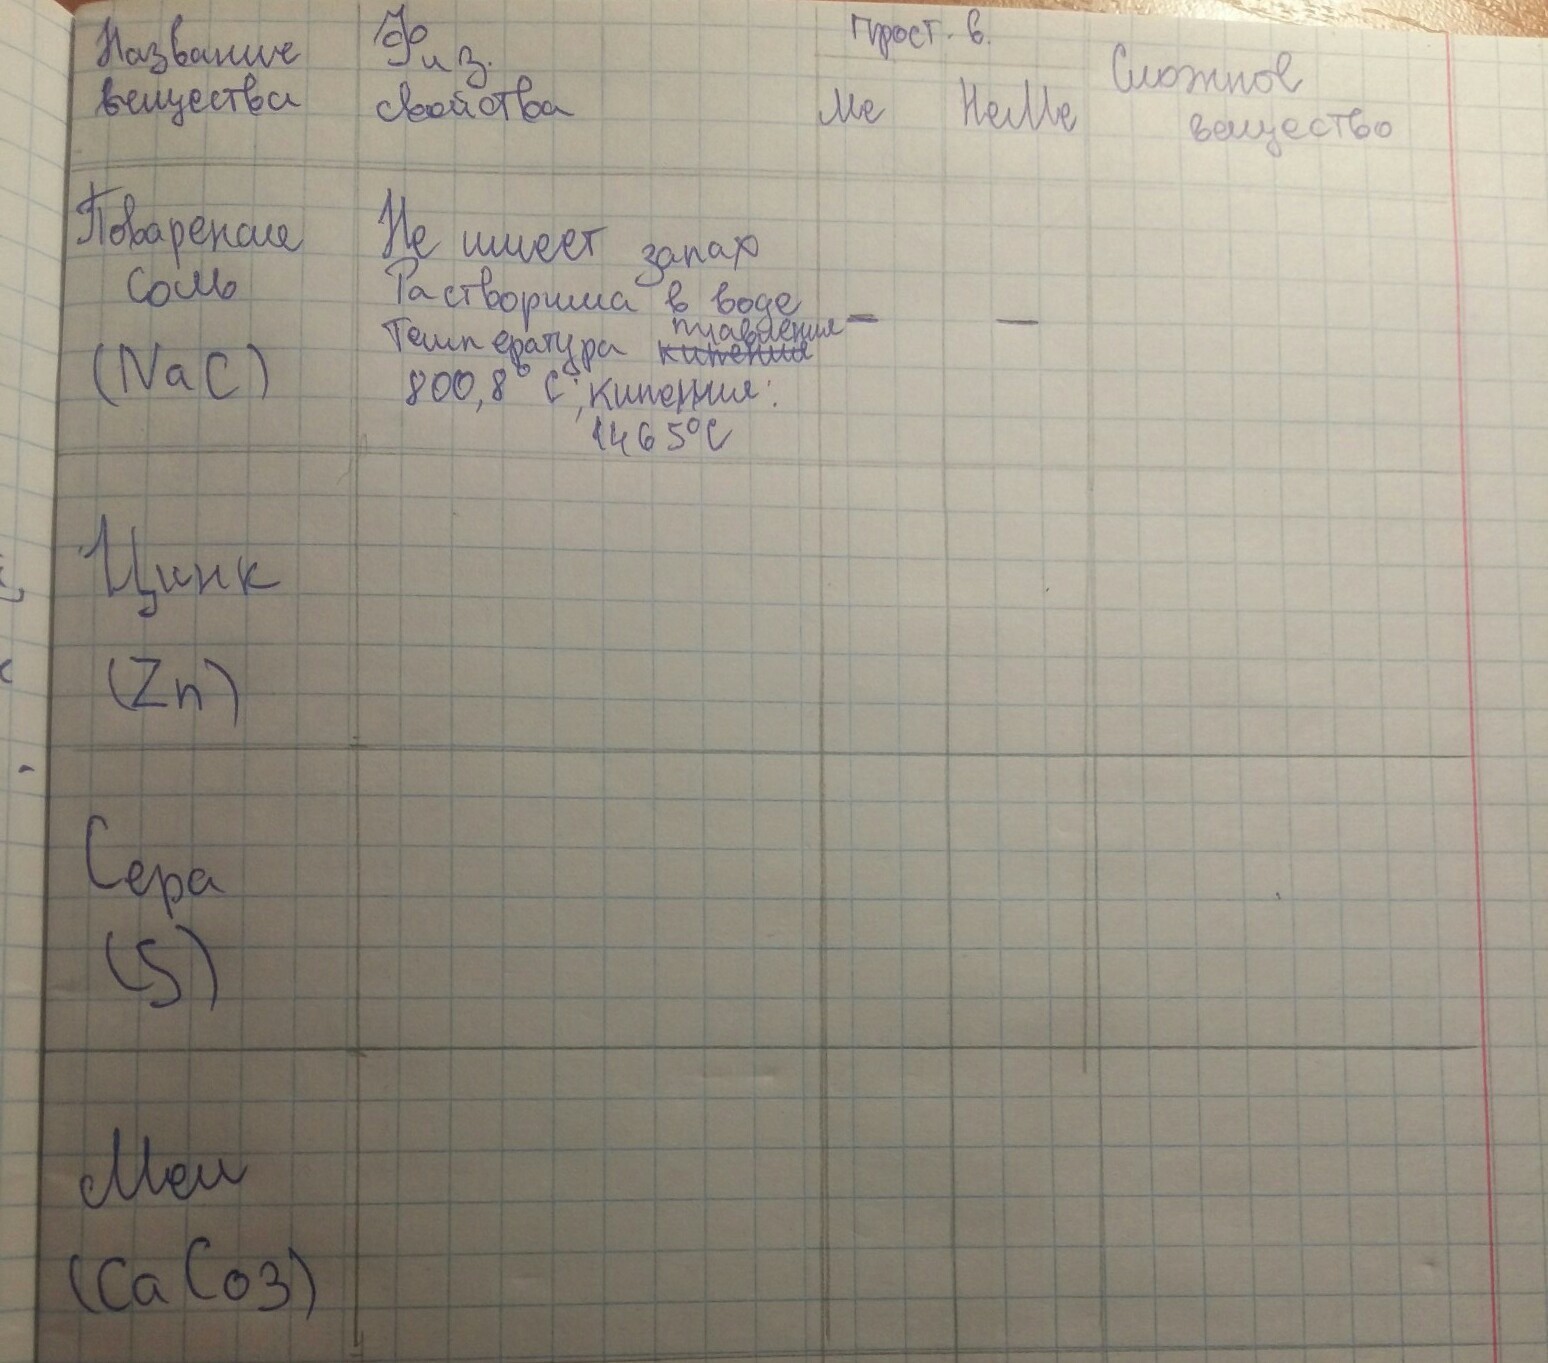 Название
вещества
Физ.
свойства
Прост. в.
Ме
НеМе
Сложное
вещество
Поваренная
соль
(NaC)
Не имеет запах
Растворима в воде
плавления
Температура кипения
800,8°С; кипения:
1465°С
—
—
Цинк
(Zn)
Сера
(S)
Мел
(CaCo3)